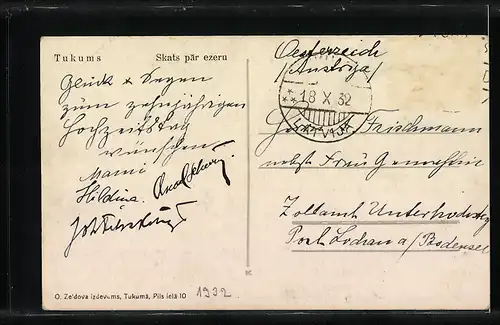 Tukums Skats pār ezeru
Glück & Segen
zum zehnjährigen
Hochzeitstag
wünschen
Mami
Hildina
Oesterreich
/Austrija/
18 X 32
LATVIJA
Frischmann
nebst Frau Gemahlin
Zollamt Unterhochsteg
Post Lochau a/Bodensee
O. Zeidova izdevums, Tukumā, Pils ielā 10
1932